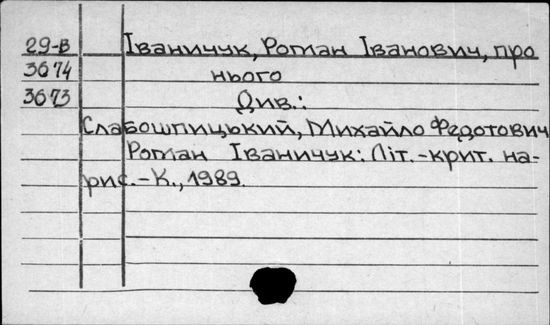 29-В Іваничук, Роман Іванович, про
3674 нього
3673 Див.:
Слабошпицький, Михайло Федотович
Роман Іваничук: Літ.-крит. на-
рис.-К., 1989.